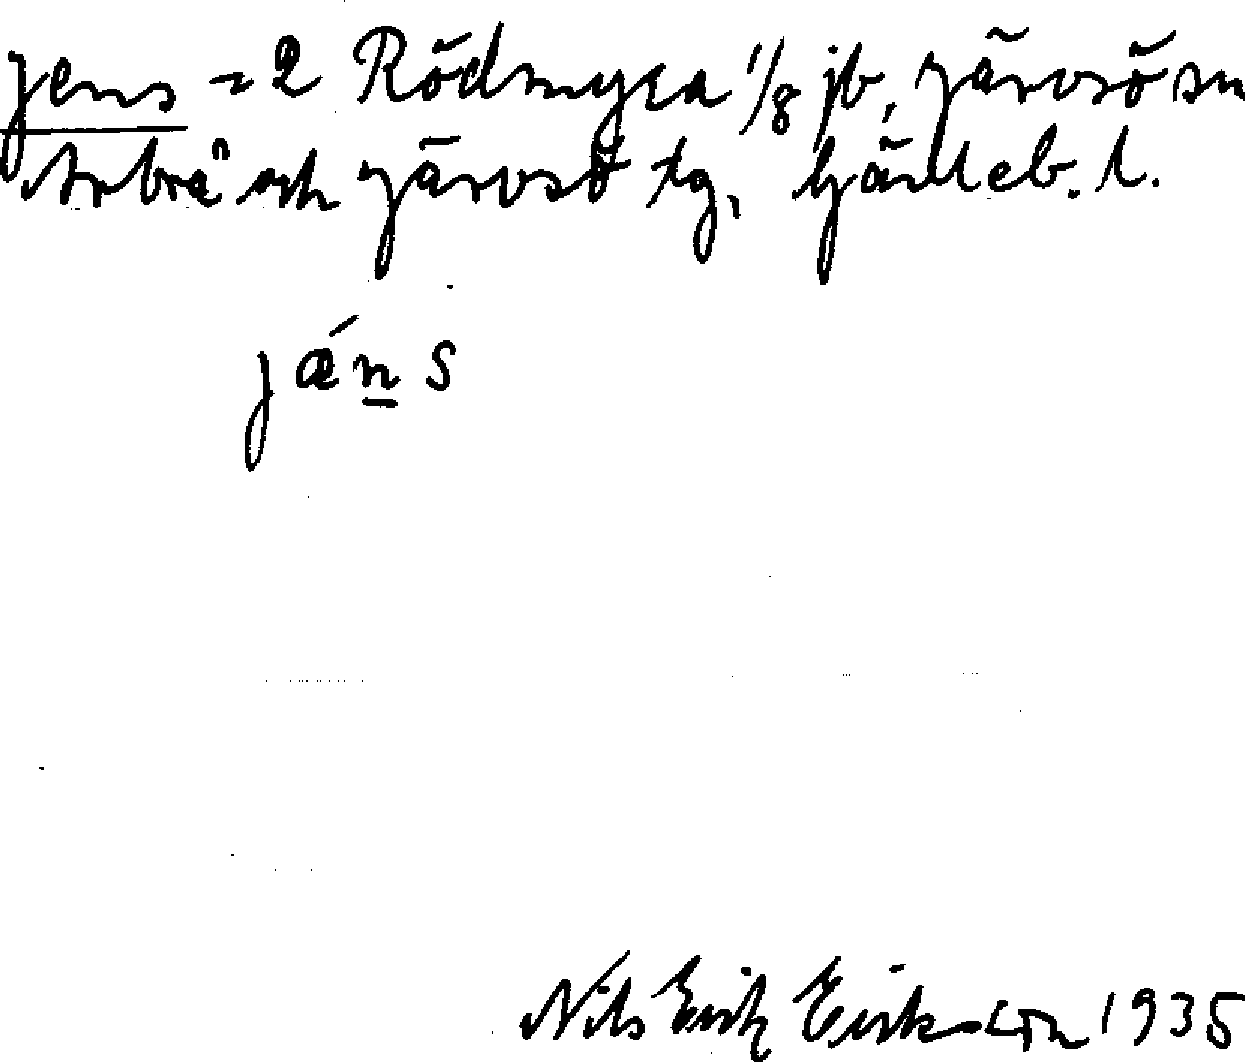 Jens = 2 Rödmyra 1/8 jb, Järvsö sn
Arbrå och Järvsö tg, Gävleb. l.
jä́ns
Nils Erik Eriksson 1935